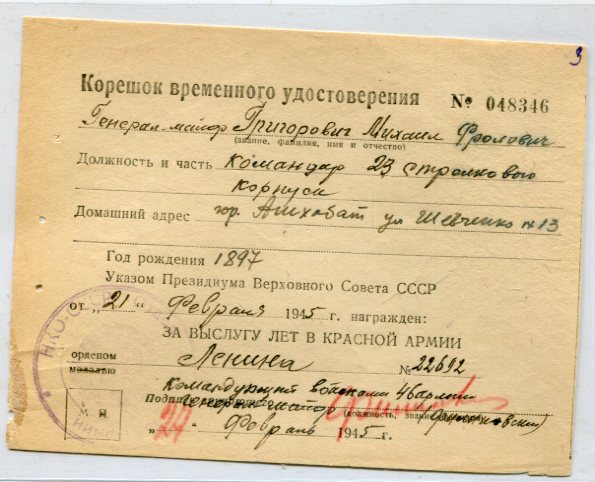 3
Корешок временного удостоверения № 048346
Генерал-майор Григорович Михаил Фролович
(звание, фамилия, имя и отчество)
Должность и часть командир 23 стрелкового
корпуса
Домашний адрес гор. Ашхабат ул Шевченко № 13
Год рождения 1897
Указом Президиума Верховного Совета СССР
от „21“ Февраля 1945 г. награжден:
ЗА ВЫСЛУГУ ЛЕТ В КРАСНОЙ АРМИИ
орденом Ленина № 22692
медалью
НКО-СССР
Командующий войсками 4
Подпись
Генерал майор (должность, звание)
М. П.
„21“ Февраль 1945 г.